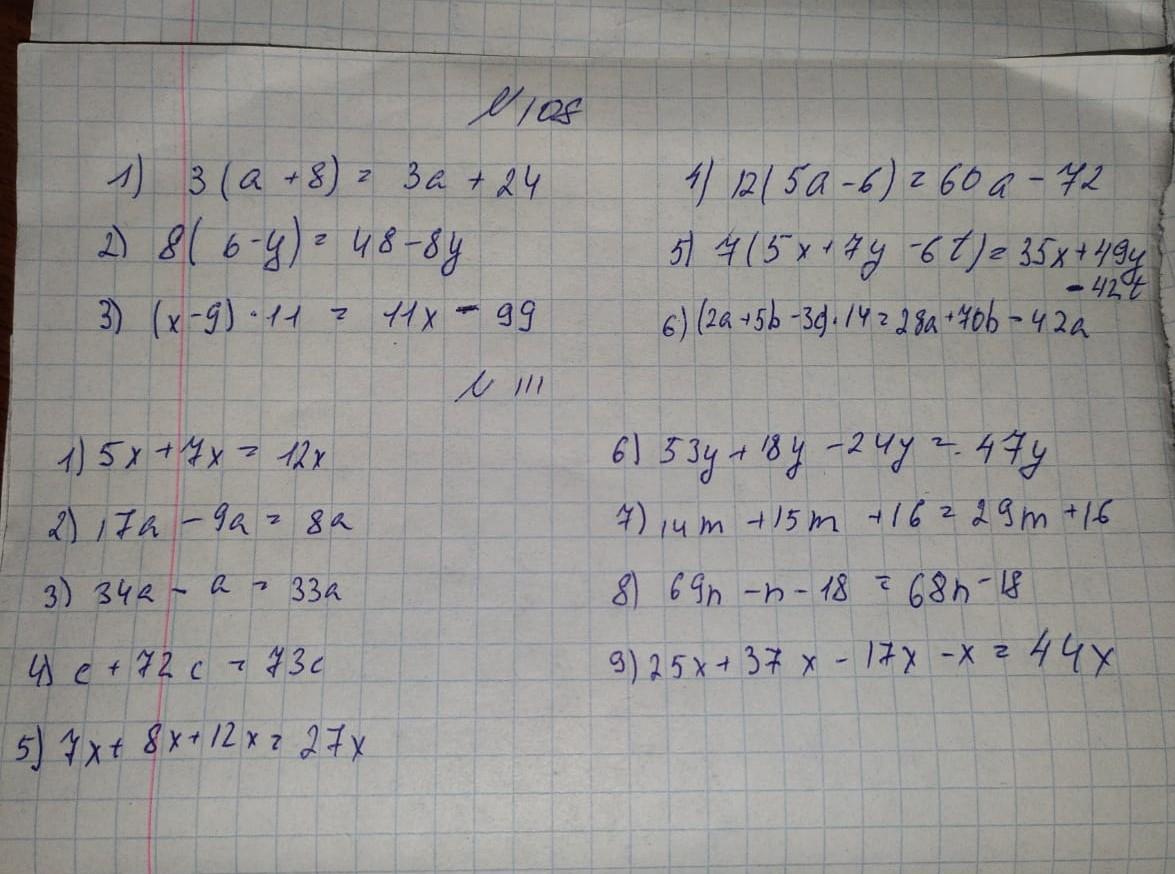 №108
1) 3(a+8) = 3a + 24
2) 8(6-y) = 48-8y
3) (x-9)·11 = 11x - 99
4) 12(5a-6) = 60a - 72
5) 7(5x+7y-6t) = 35x+49y
- 42t
6) (2a+5b-3c)·14 = 28a+70b-42a
№111
1) 5x+7x = 12x
2) 17a - 9a = 8a
3) 34a - a = 33a
4) c + 72c = 73c
5) 7x + 8x+12x = 27x
6) 53y+18y-24y = 47y
7) 14m + 15m + 16 = 29m + 16
8) 69n - n - 18 = 68n - 18
9) 25x+37x-17x-x = 44x